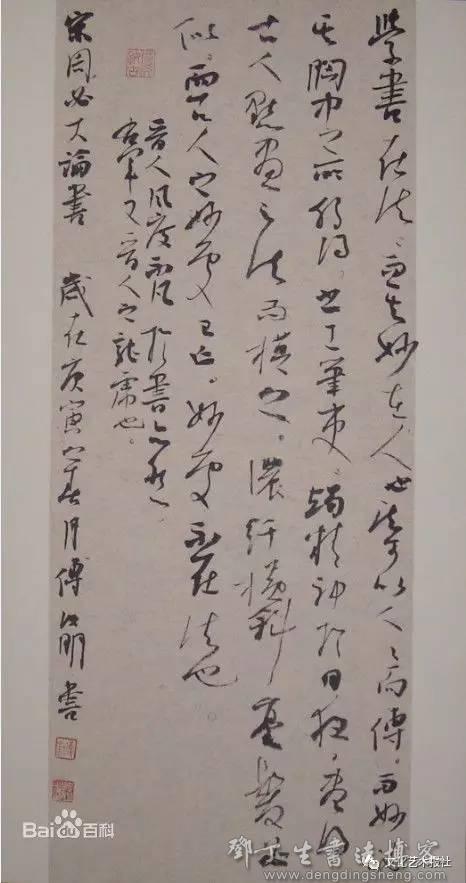 學書在法而其妙在人也法可以人人而傳而妙必
其胸中之所獨得書工筆吏竭精神於日夜盡得
古人點畫之法而模之濃纤橫斜毫髮必
似而古人之妙處已亡妙處不在法也
晋人风度不凡於書亦然
右軍又晋人之龍虎也
宋周必大論書 歲在庚寅之春月傅明書
Bai百科
鄧丁生書法博客
www.dengdingsheng.com
文化艺术报社